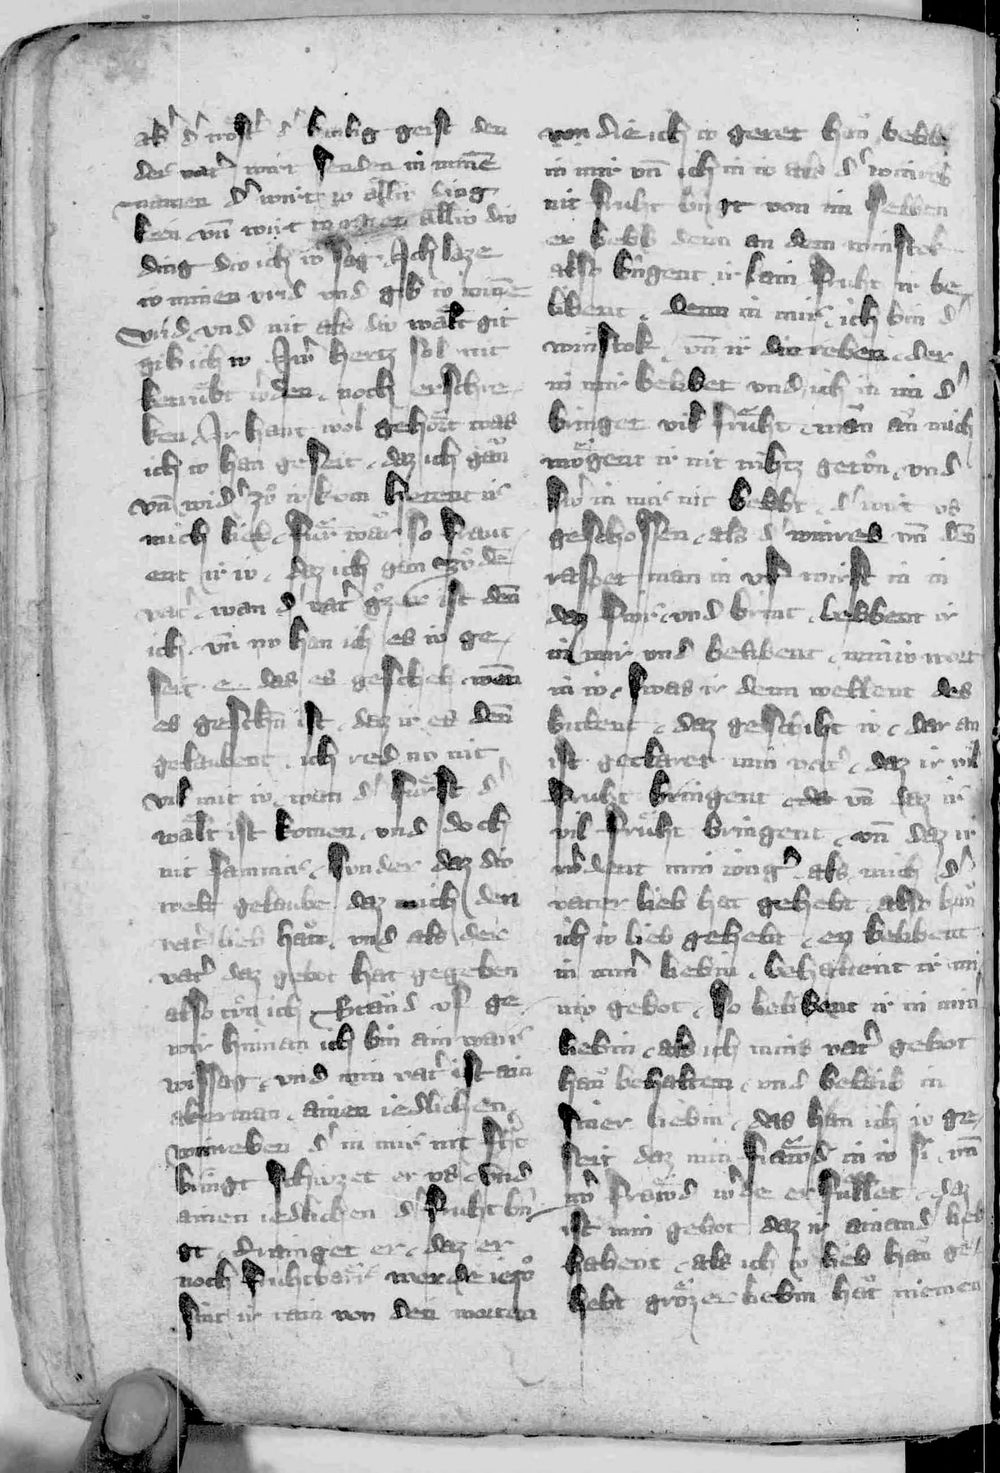 aber d' tröst' d' hailig geist den
der vat' wirt senden in minē
namen d' wirt iv älliv ding
lern vn̄ wirt iv älliv div
ding div ich iv sag Ich laze
iv minen vrid vnd gib iv minē
vrid vnd nit als div wält git
gib ich iv Iwer hertz sol nit
betrübt w'den noch erschre
ken Ir hant wol gehört was
ich iv han geseit daz ich gan
vn̄ wid' zů iv kom hetent ir
mich lieb für war so fraut
ent ir iv daz ich gan zů dē
vat' wan d' vat' gröz' ist deñ
ich vn̄ nv han ich es iv ge
seit e das es gescheh wenn
es geschehn ist daz ir es deñ
gelaubent ich red nv nit
vil mit iv wan d' fürst d'
wält ist komen vnd doch
nit sanmir sunder daz div
welt gelaube daz mich den
vat' lieb hān vnd als der
vat' daz gebot hat gegeben
also tůn ich Stand vf ge
wir hinnan ich bin ain war
winsag vnd min vat' ist ain
akerman ainen ieclichen
winreben d' in mir nit fruht
bringt schnizet er vs vnd
ainen ieclichen d' fruht brin
gt drainget er daz er
noch fruhtbar werde iezo
sint ir rain von den worten
von die ich iv geret han belibt
in mir vn̄ ich in iv als d' winreb
nit fruht bringt von im selben
er belib denn an dem winstok
also bringent ir kain fruht ir be
libent denn in mir ich bin d'
winstok vn̄ ir die reben der
in mir belibet vnd ich in im d'
bringet vil fruht wan an mich
mögent ir nit nihtz getůn vnd
sw' in mir nit belibt d' wirt vs
geschossen als d' winreb vn̄ deñ
raspet man in vn̄ wirft in in
daz fiur vnd brint belibent ir
in mir vnd belibent miniv wort
in iv swas ir denn wellent des
bittent daz geschiht iv dar an
ist geclaret min vat' daz ir vil
fruht bringent vn̄ daz ir
vil früht bringent vn̄ daz ir
w'dent min iung' als mich d'
vatter lieb hat gehebt also han
ich iv lieb gehebt nv belibent
in min' liebin behaltent ir mi
niv gebot so belibent ir in min
liebin als ich mins vat' gebot
han behalten vnd belib in
siner liebin das han ich iv ge
seit daz min frawd in iv si vn̄
iw' frawd w'de erfüllet daz
ist min gebot daz ir ainand' lieb
habent als ich iv lieb han ge
hebt grözer liebin hat niemen